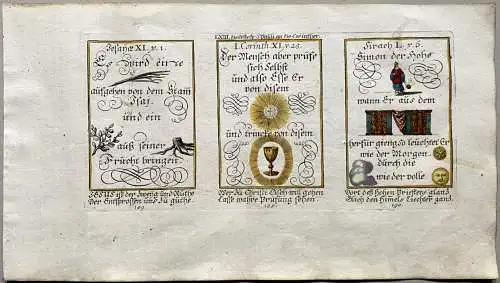 LXIII. Epistel S. Pauli an die Corinther.
Jesaiæ XI. v. 1.
Es wird eine
aufgehen von dem Stam
Isai,
und ein
auß seiner
Frücht bringen.
JESUS ist der Zweig und Ruthe
Der Entsprossen und zu guthe
189.
I. Corinth. XI. v. 28.
Der Mensch aber prüfe
sich Selbst
und also Esse Er
von disem
und trincke von disem
Wer zu Christi Tisch will gehen
Lasse wahre Prüfung sehen.
Sirach L. v. 6.
Simon der Hohe
wann Er aus dem
herfür gieng so leüchtet Er
wie der Morgen
durch die
wie der volle
Dort des Hohen Priesters glantz
Gleich den Himels Liechter gantz.
190.